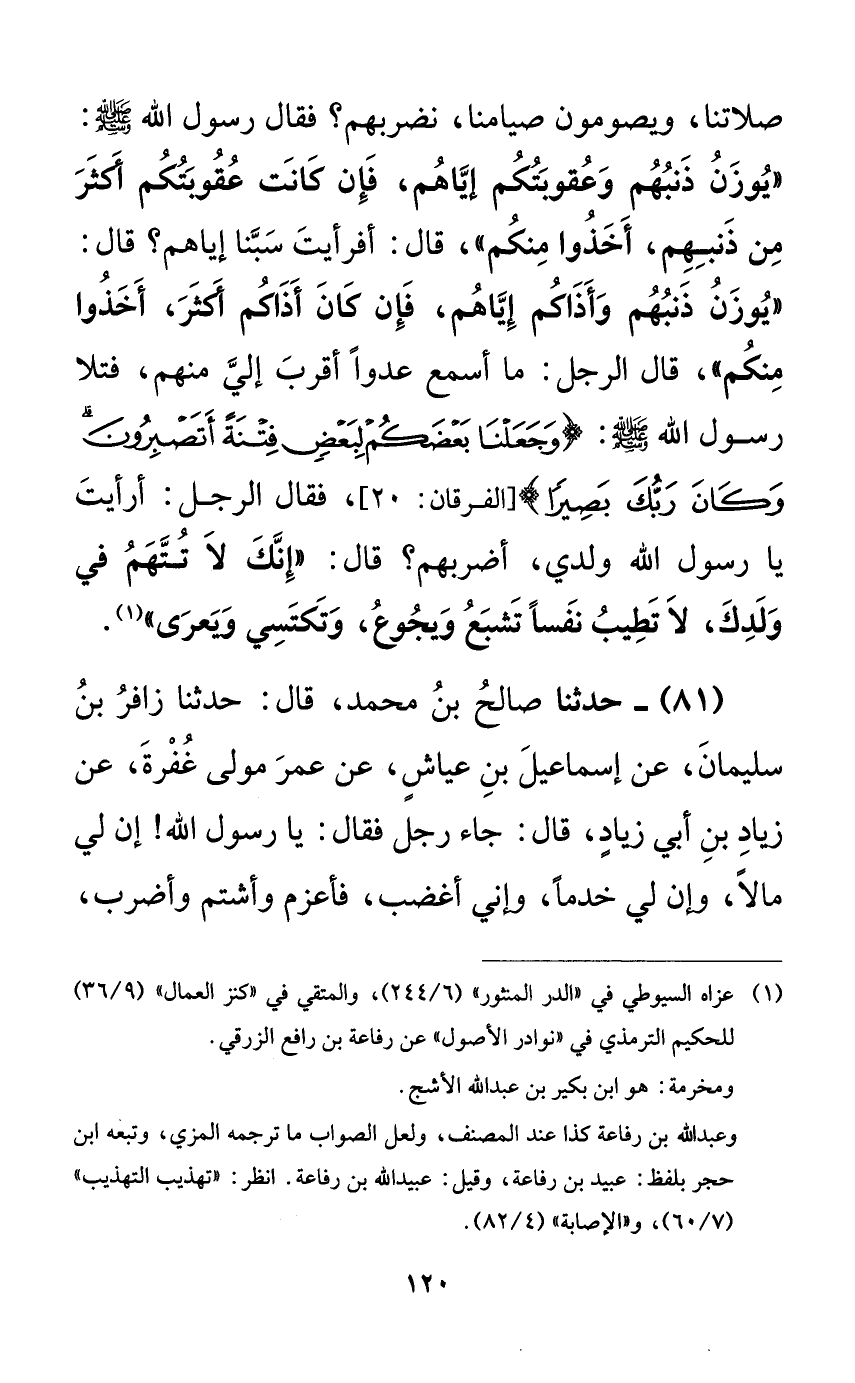 صلاتنا، ويصومون صيامنا، نضربهم؟ فقال رسول الله ﷺ:
«يُوزَنُ ذَنبُهُم وَعُقوبَتُكُم إيَّاهُم، فَإِن كَانَت عُقُوبَتُكُم أَكثَرَ
مِن ذَنبِهِم، أَخَذُوا مِنكُم»، قال: أفرأيتَ سَبَّنا إياهم؟ قال:
«يُوزَنُ ذَنبُهُم وَأَذَاكُم إِيَّاهُم، فَإِن كَانَ أَذَاكُم أَكثَرَ، أَخَذُوا
مِنكُم»، قال الرجل: ما أسمع عدواً أقربَ إليَّ منهم، فتلا
رسول الله ﷺ: ﴿وَجَعَلْنَا بَعْضَكُمْ لِبَعْضٍ فِتْنَةً أَتَصْبِرُونَ ۗ
وَكَانَ رَبُّكَ بَصِيرًا﴾ [الفرقان: ٢٠]، فقال الرجل: أرأيتَ
يا رسول الله ولدي، أضربهم؟ قال: «إِنَّكَ لاَ تُتَّهَمُ في
وَلَدِكَ، لاَ تَطِيبُ نَفساً تَشبَعُ وَيجُوعُ، وَتَكتَسِي وَيَعرَى»(١).
(٨١) ـ حدثنا صالحُ بنُ محمد، قال: حدثنا زافرُ بنُ
سليمانَ، عن إسماعيلَ بنِ عياشٍ، عن عمرَ مولى غُفْرةَ، عن
زيادِ بنِ أبي زيادٍ، قال: جاء رجل فقال: يا رسول الله! إن لي
مالاً، وإن لي خدماً، وإني أغضب، فأعزم وأشتم وأضرب،
(١) عزاه السيوطي في «الدر المنثور» (٢٤٤/٦)، والمتقي في «كنز العمال» (٣٦/٩)
للحكيم الترمذي في «نوادر الأصول» عن رفاعة بن رافع الزرقي.
ومخرمة: هو ابن بكير بن عبدالله الأشج.
وعبدالله بن رفاعة كذا عند المصنف، ولعل الصواب ما ترجمه المزي، وتبعه ابن
حجر بلفظ: عبيد بن رفاعة، وقيل: عبيدالله بن رفاعة. انظر: «تهذيب التهذيب»
(٦٠/٧)، و«الإصابة» (٨٢/٤).
١٢٠